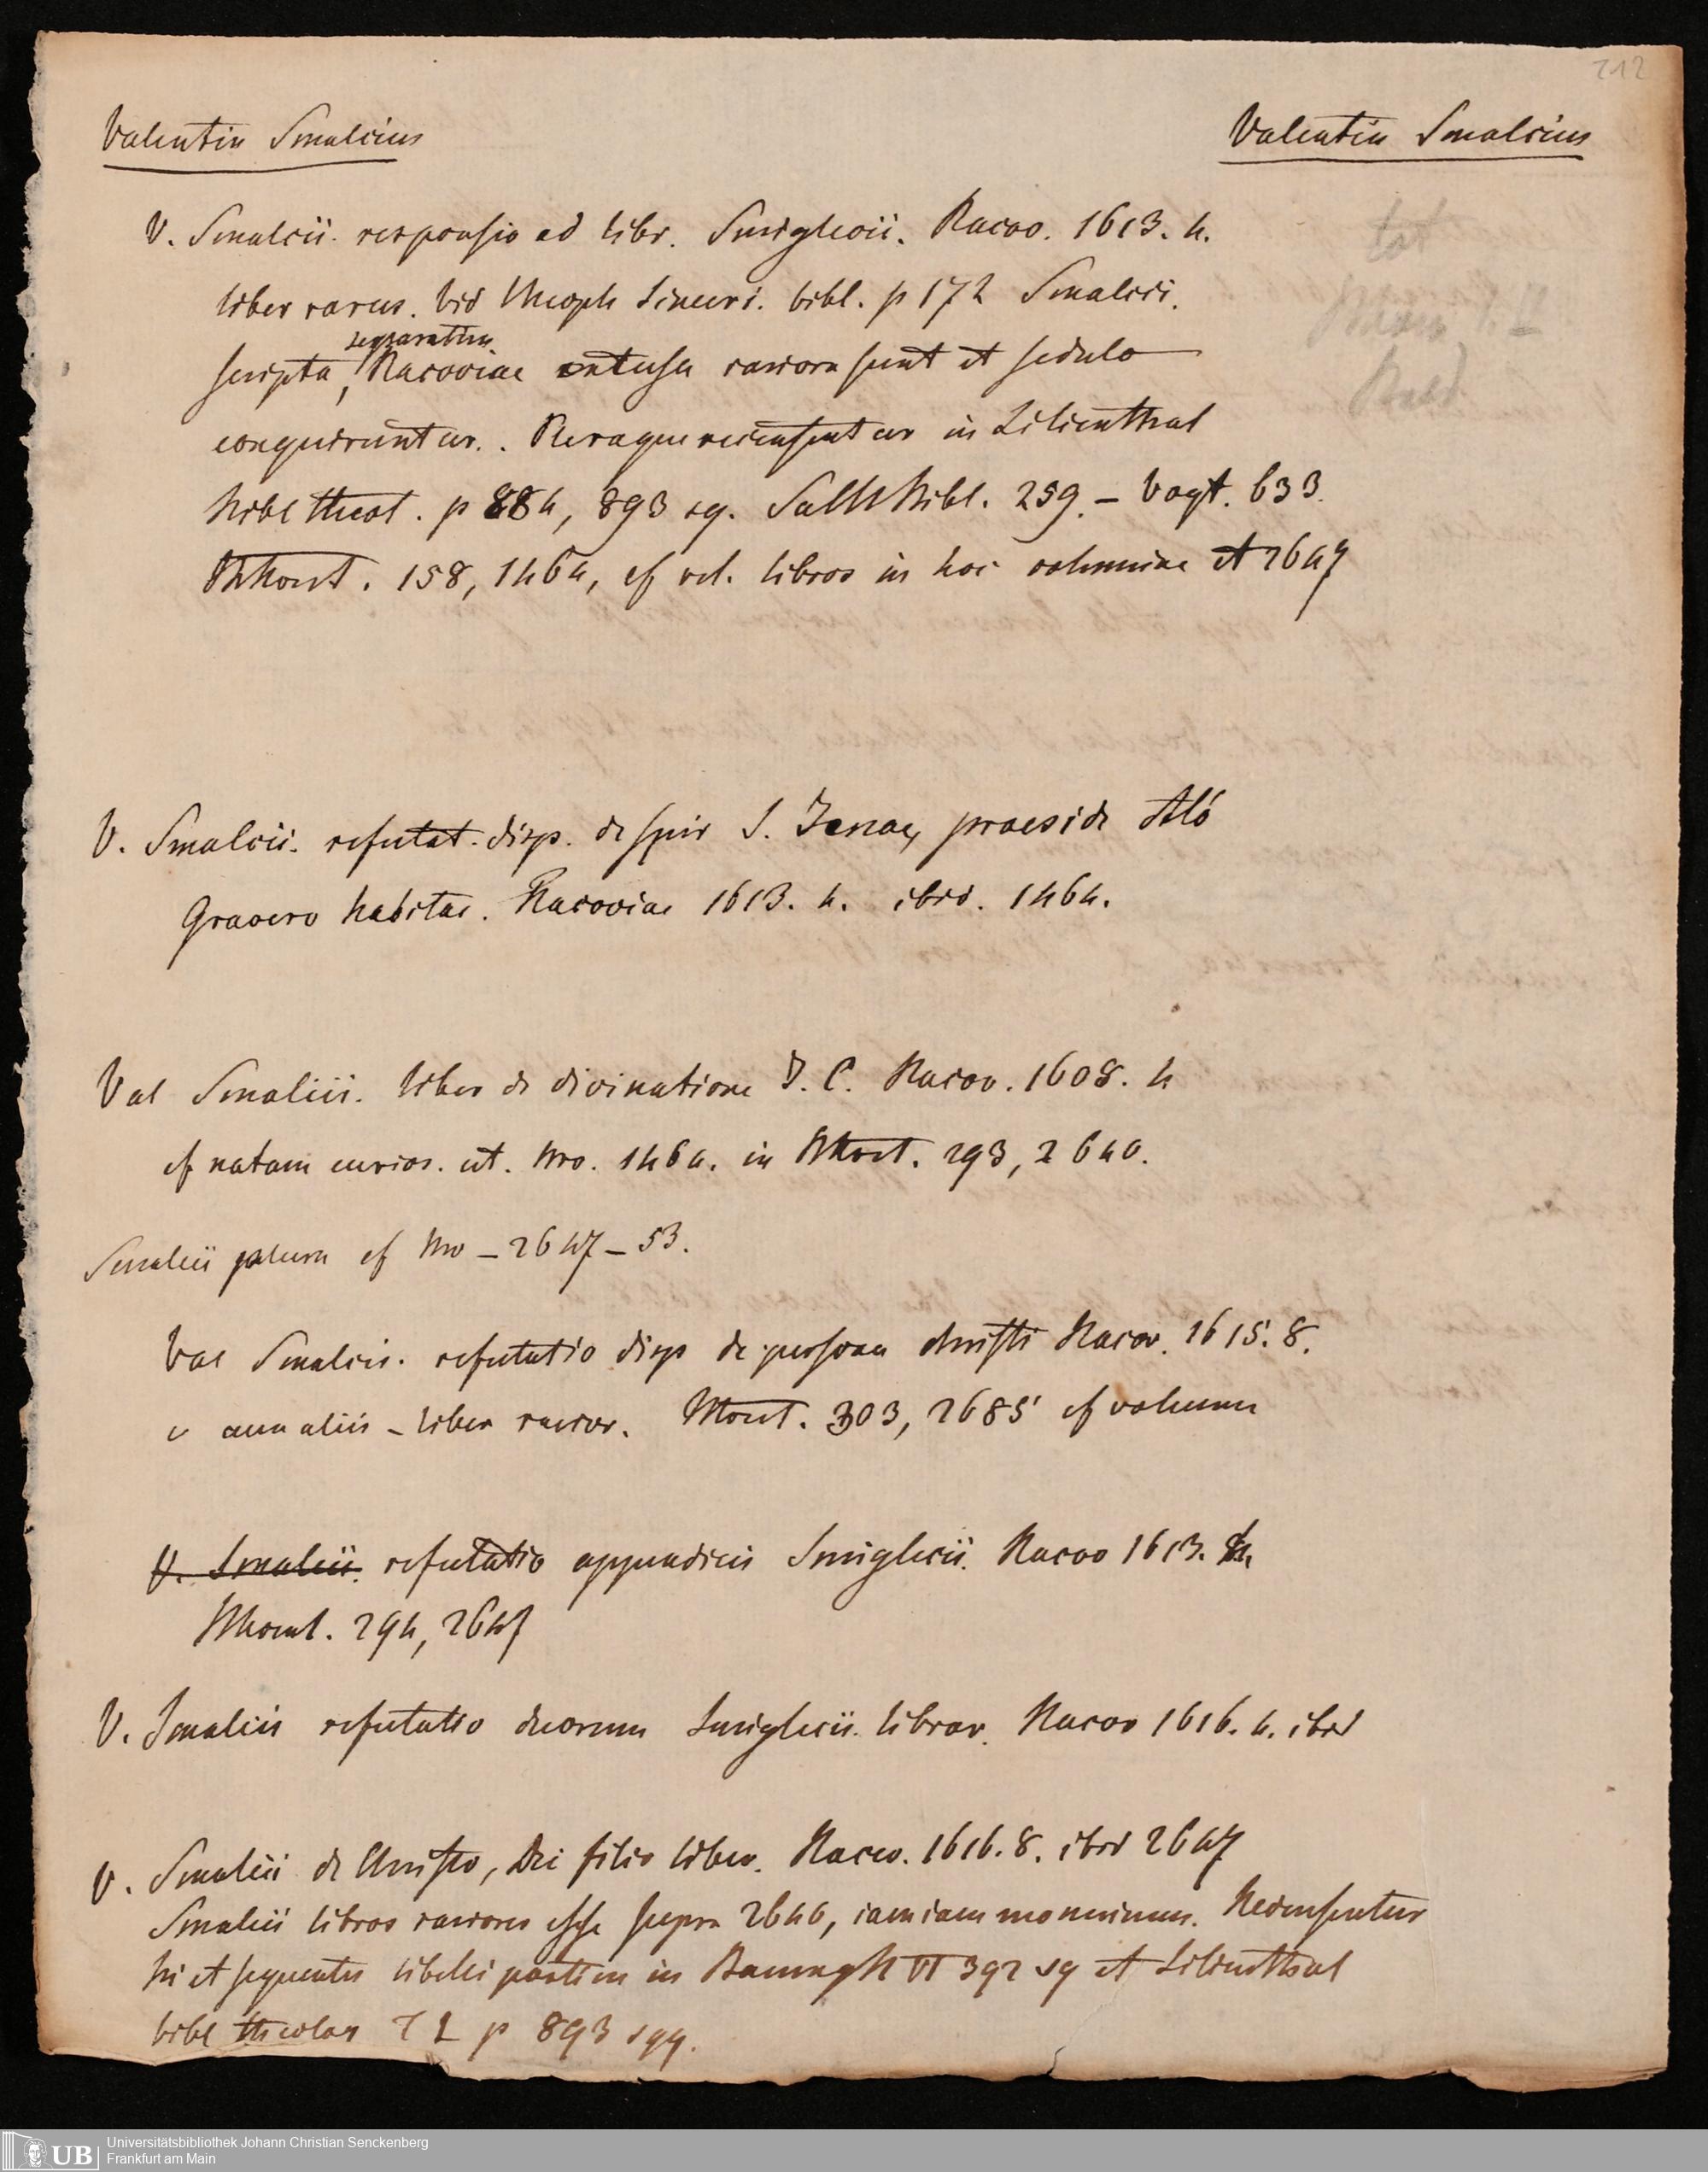 212
Valentin Smalcius
Valentin Smalcius
V. Smalcii. responsio ad libr. Smiglecii. Racov. 1613. 4.
liber rarus. vid Theoph Sinceri. bibl. p 172 Smalcii.
separatim
scripta, Racoviae extusa rariora sunt et sedulo
conquiruntur. . Pleraque recensentur in Lilienthal
Bibl theol. p 884, 893 sq. Salth bibl. 259. – Vogt. 633.
158, 1464, cf rel. libros in hoc volumine et 2647
V. Smalcii. refutat. disp. de spir S. Jenae, praeside Alb
Grawero habitae. Racoviae 1613. 4. ibid. 1464.
Val Smalcii. liber de divinatione J. C. Racov. 1608. 4
cf notam curios. ut. Nro. 1464. in 293, 2640.
Smalcii plura cf Nro – 2647 – 53.
Val Smalcii. refutatio disp de persona Christi Racov. 1615. 8.
c cum aliis – liber rarior. 303, 2685 cf volumen
V. Smalcii. refutatio appendicis Smiglecii. Racov 1613. 4.
294, 2647
V. Smalcii refutatio duorum Smiglecii. libror. Racov 1616. 4. ibid
V. Smalcii de Christo, Dei filio liber. Racov. 1616. 8. ibid 2647
Smalcii libros rariores esse supra 2646, iam iam monuimus. Recensentur
hi et sequentes libelli partim in Baumg h VI 392 sq et Lilienthal
bibl theolog T 2 p 893 sqq.
UB
Universitätsbibliothek Johann Christian Senckenberg
Frankfurt am Main